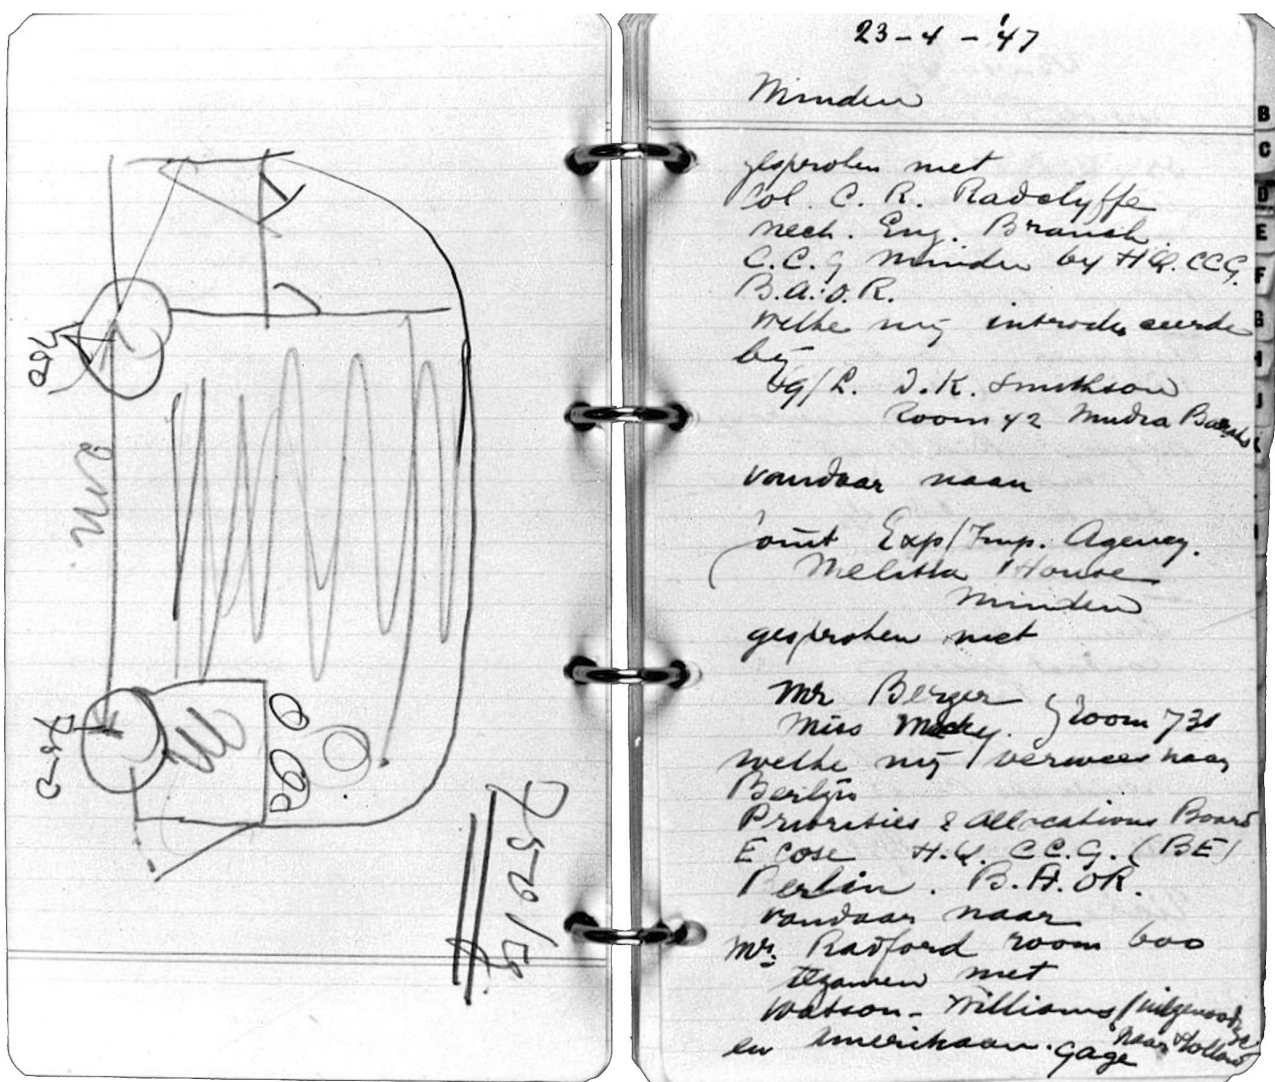 23-4-'47
Minden
gesproken met
Col. C. R. Radclyffe
Mech. Eng. Branch
C.C.G Minden by H.Q. CCG.
B.A.O.R.
welke mij introduceerde
bij
D. K. Smithson
Room 42 Mudra
vandaar naar
Joint Exp/Imp. Agency.
Melitta House
Minden
gesproken met
Mr Berger
Miss Macky. } Room 731
welke mij verwees naar
Berlijn
Priorities & Allocations Board
E cose H.Q. C.C.G. (BE)
Berlin. B.A.OR.
vandaar naar
Mr. Radford room 600
tezamen met
Watson-Williams / naar Holland
en Amerikaan. Gage
B
C
D
E
F
G
H
J
K